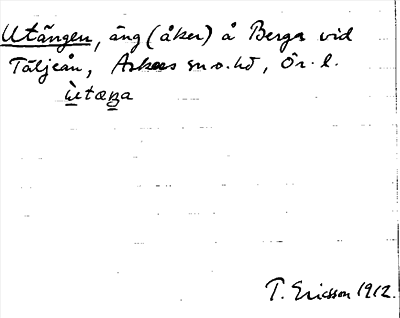 Utängen, äng (åker) å Berga vid
Täljeån, Askers sn o. hd, Ör. l.
ùtæŋa
T. Ericsson 1912.